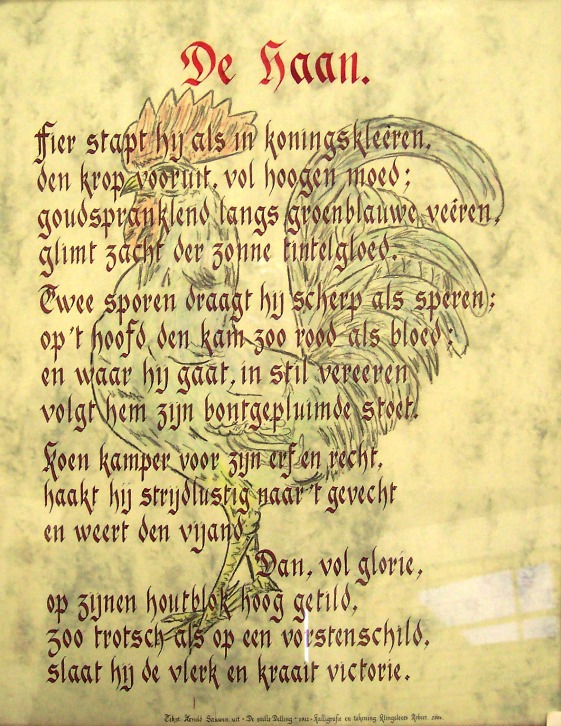 De Haan.
Fier stapt hij als in koningskleêren,
den krop vooruit, vol hoogen moed;
goudsprankelend langs groenblauwe veêren,
glimt zacht der zonne tintelgloed.
Twee sporen draagt hij scherp als speren;
op 't hoofd den kam zoo rood als bloed;
en waar hij gaat, in stil vereeren
volgt hem zijn bontgepluimde stoet.
Koen kamper voor zijn erf en recht,
haakt hij strijdlustig naar 't gevecht
en weert den vijand.
Dan, vol glorie,
op zijnen houtblok hoog getild,
zoo trotsch als op een vorstenschild,
slaat hij de vlerk en kraait victorie.
Tekst: Arnold Sauwen, uit - De stille Delling - 1912 - Kalligrafie en tekening Klingeleers Robert